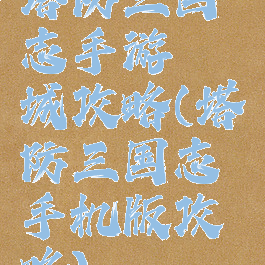 塔防三国
志手游
城攻略(塔
防三国志
手机版攻
略)